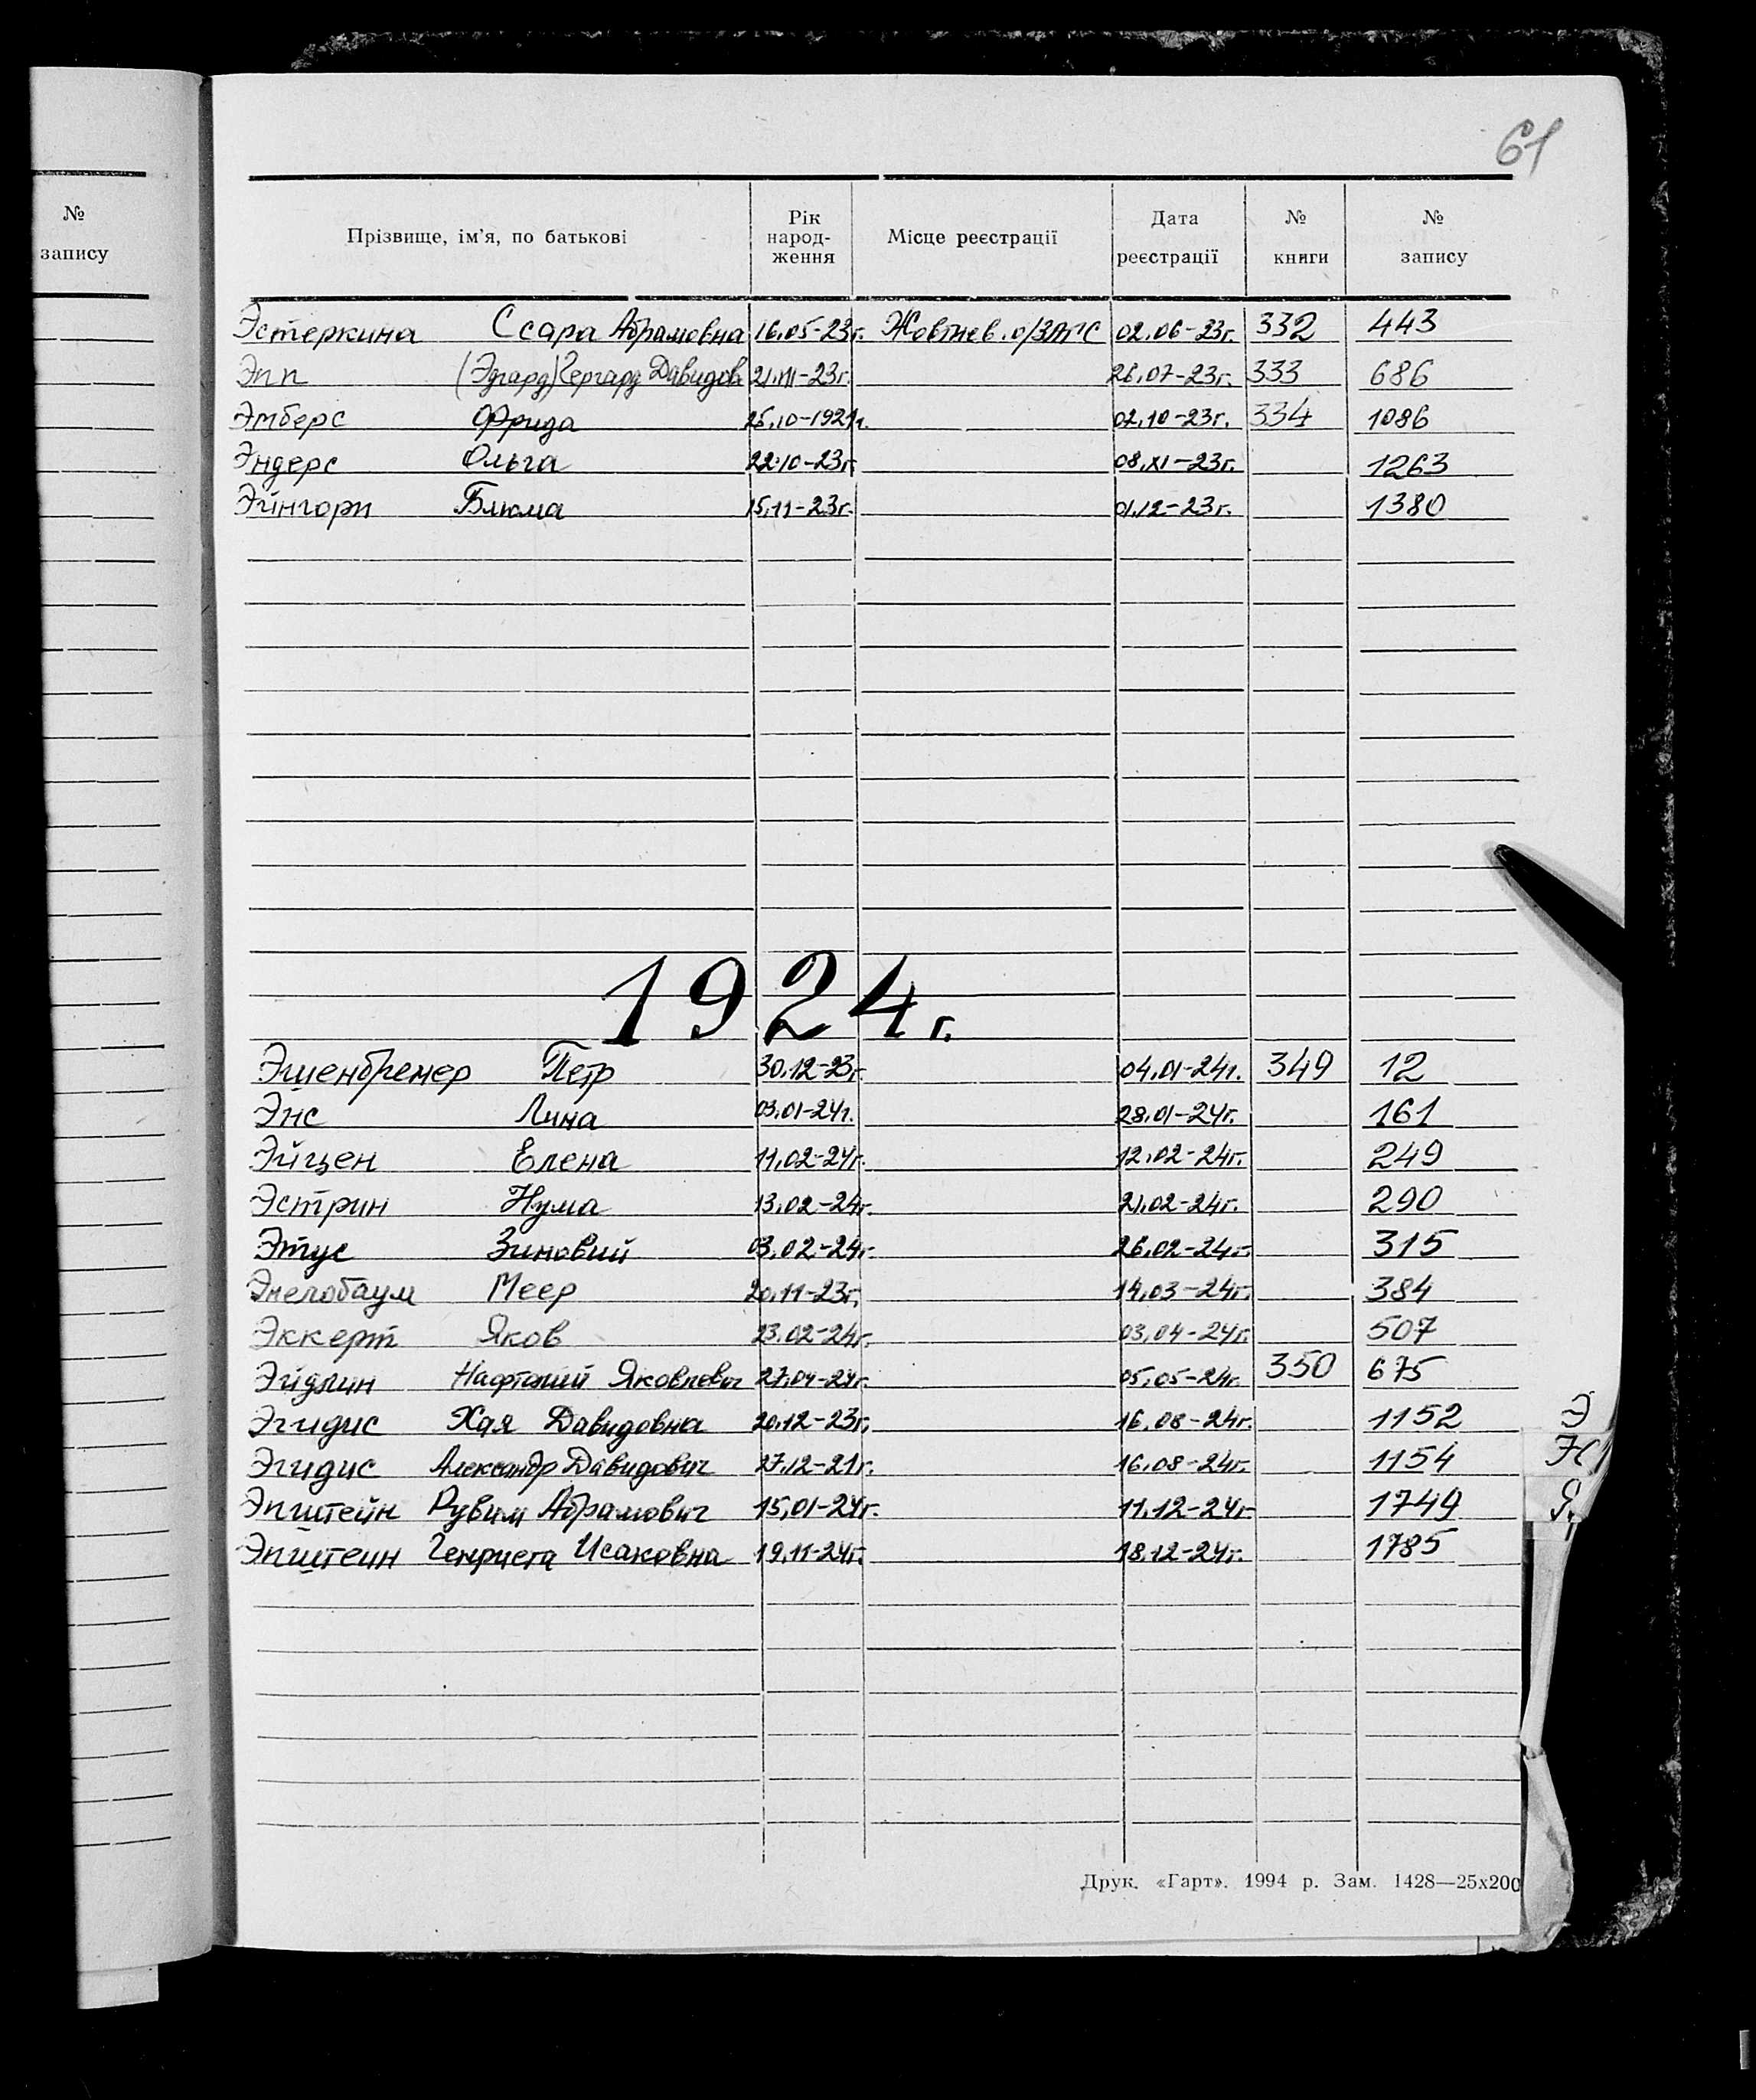 61
№
запису
Прізвище, ім'я, по батькові Рік народ-ження Місце реєстрації Дата реєстрації № книги № запису
Эстеркина Ссара Абрамовна 16.05-23г. Жовтнев. о/ЗАГС 02.06-23г. 332 443
Эпп (Эдгард) Гергард Давидов 21.VII-23г. 26.07-23г. 333 686
Эмберс Фрида 25.10-1921г. 02.10-23г. 334 1086
Эндерс Ольга 22.10-23г. 08.XI-23г. 1263
Эйнгорн Блюма 15.11-23г. 01.12-23г. 1380
1924г.
Эшенбремер Петр 30.12-23г. 04.01-24г. 349 12
Энс Лина 03.01-24г. 28.01-24г. 161
Эйцен Елена 11.02-24г. 12.02-24г. 249
Эстрин Нума 13.02-24г. 21.02-24г. 290
Этус Зиновий 03.02-24г. 26.02-24г. 315
Меер 20.11-23г. 14.03-24г. 384
Эккерт Яков 23.02-24г. 03.04-24г. 507
Эйдлин Нафталий Яковлевич 27.04-24г. 05.05-24г. 350 675
Эгидис Хая Давидовна 20.12-23г. 16.08-24г. 1152
Эгидис Александр Давидович 27.12-21г. 16.08-24г. 1154
Эпштейн Рувим Абрамович 15.01-24г. 11.12-24г. 1749
Эпштеин Генриета Исаковна 19.11-24г. 18.12-24г. 1785
Э
Ю
Я
Друк. «Гарт». 1994 р. Зам. 1428—25х200